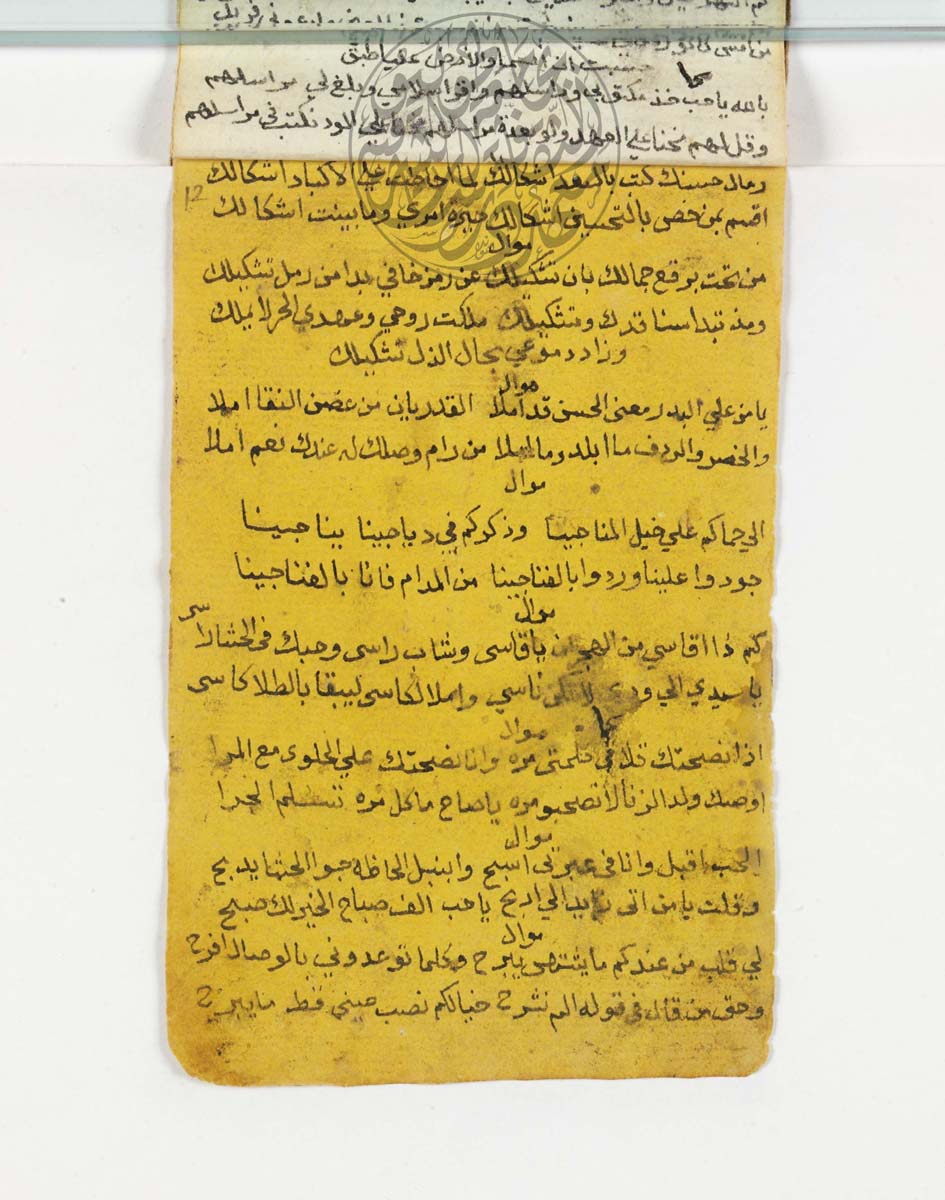 حسبت ان السما والارض عليا طبق
بالله يا حب خذ مكتوبي وراسلهم واقرا سلامي وبلغ لي مراسلهم
وقل لهم نحنا علي العهد ولو بعدة مراسلهم علي الود نكتب في مراسلهم
12
رمال حسنك كتب بالسعد اشكالك لما احاطت علي الاكباد اشكالك
اقسم بمن خص بالتحسين اشكالك حيره امري وما بينت اشكالك
موال
من تحت برقع جمالك بان تشكيلك عن رمز خافي بدا من رمل تشكيلك
ومذ تبدا سنا قدك وتشكيلك ملكت روحي وعهدي الحر لا يملك
وزاد دموعي بحال الذل تشكيلك
موال
يا من علي البدر معنى الحسن قد املا القد ريان من غصن النقا املا
والخصر والردف ما من رام وصلك له عندك نعم املا
موال
الي حماكم علي خيل المنا جينا وذكركم في دياجينا يناجينا
جودوا علينا وردوا بالفناجينا من المدام فانا بالفنا جينا
موال
كم ذا اقاسي من الهجران يا قاسى وشاب راسى وحبك فى الحشا راسى
يا سيدي الي ودي لا تكن ناسي واملا الكاسى ليبقا بالطلا كاسى
موال
اذا نصحتك قلا في كلمتى مره وانا نصحتك علي الحلوى مع المرا
اوصك ولد الزنا لا تصحبو مره يا صاح ما كل مره تسلم الجرا
موال
الحب اقبل وانا في عبرتى اسبح وابنبل الحاظه جوا الحشا يدبح
وقلت يا من اتى زايد الي اربح يا حب الف صباح الخير لك صبح
موال
لي قلب من عندكم ما يشتهى يبرح وكلما توعدوني بالوصال افرح
وحق من قال في قوله الم نشرح خيالكم نصب عيني قط ما يبرح